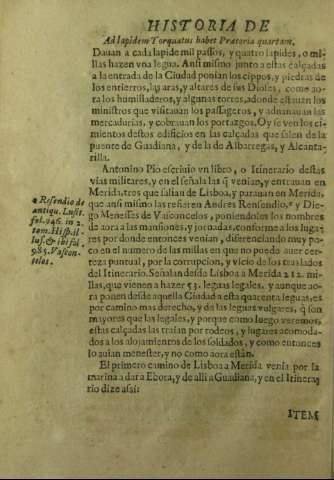 HISTORIA DE
Ad lapidem Torquatus habet Prætoria quartam.
Dauan a cada lapide mil passos, y quatro lapides, o mi-
llas hazen vna legua. Ansi mismo junto a estas calçadas
a la entrada de la Ciudad ponian los cippos, y piedras de
los entierros, las aras, y altares de sus Dioses, como ao-
ra los humilladeros, y algunas torres, adonde estauan los
ministros que visitauan los passageros, y aduanauan las
mercadurias, y cobrauan los portazgos. Oy se ven los ci-
mientos destos edificios en las calçadas que salen de la
puente de Guadiana, y de la de Albarregas, y Alcanta-
rilla.
Antonino Pio escriuio vn libro, o Itinerario destas
vias militares, y en el señala las q̃ venian, y entrauan en
Merida, tres que salian de Lisboa, y parauan en Merida,
que ansi mismo las refieren Andres Rensendio, ª y Die-
go Menesses de Vasconcelos, poniendoles los nombres
de aora a las mansiones, y jornadas, conforme a los luga-
res por donde entonces venian, diferenciando muy po-
co en el numero de las millas en que no puedo auer cer-
teza puntual, por la corrupcion, y vicio de los traslados
del Itinerario. Señalan desde Lisboa a Merida 212. mi-
llas, que vienen a hazer 53. leguas legales. y aunque ao-
ra ponen desde aquella Ciudad a esta quarenta leguas, es
por camino mas derecho, y de las leguas vulgares, q̃ son
mayores que las legales, y porque como luego veremos,
estas calçadas las traian por rodeos, y lugares acomoda-
dos a los alojamientos de los soldados, y como entonces
lo auian menester, y no como aora están.
El primero camino de Lisboa a Merida venia por la
marina a dar a Ebora, y de alli a Guadiana, y en el Itinera-
rio dize assi:
ITEM
a Resendio de
antiqu. Lusit.
fol. 946. in 2.
tom. Hisp. il-
lus. & ibi fol.
985. Vascon-
celos.